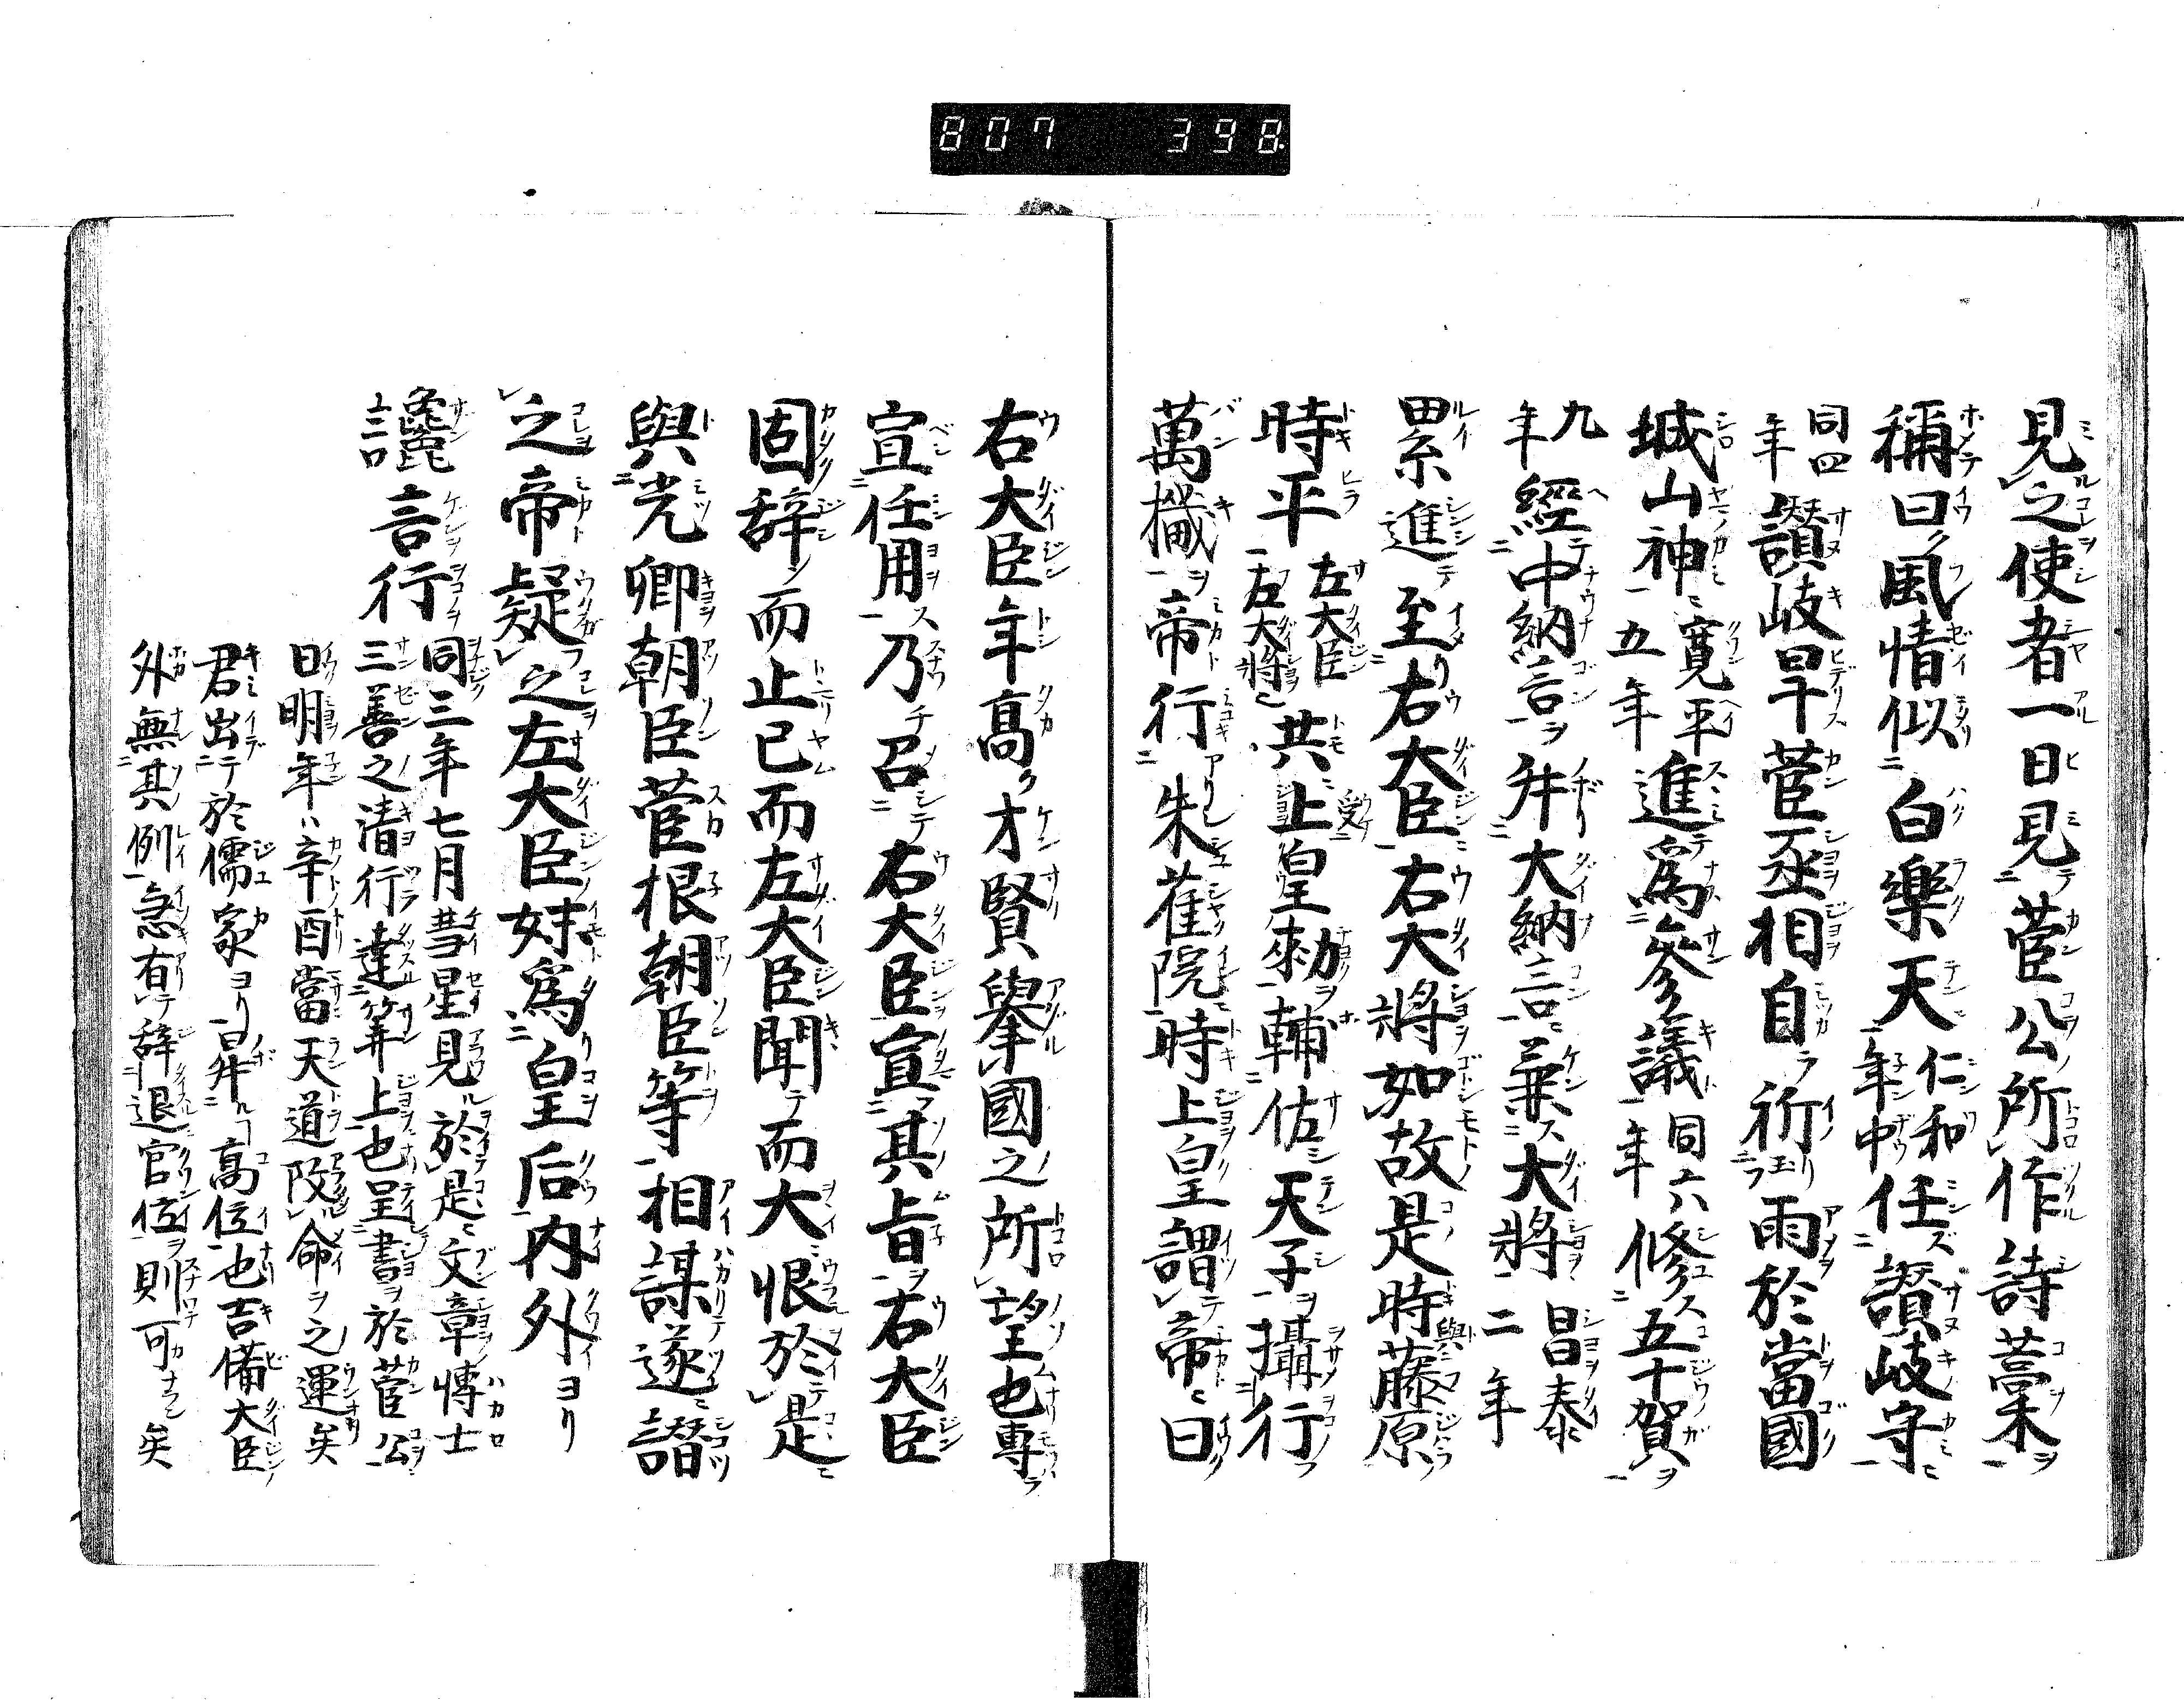 807 398
見之使者一日見菅公所作詩藁
稱曰風情似白樂天仁和年中任讃岐守
同四年讃岐旱菅丞相自祈玉雨於當國
城山神寛平五年進爲參議同六年修五十賀
九年經中納言升大納言兼大將昌泰二年
累進至右大臣右大將如故是時與藤原
時平左大臣左大將共受上皇勅輔佐天子攝行
萬機帝行朱雀院時上皇謂帝曰
右大臣年高才賢擧國之所望也專
宣任用乃召右大臣宣其旨右大臣
固辞而止已而左大臣聞而大恨於是
與光卿朝臣菅根朝臣等相謀遂譖
之帝疑之左大臣妹爲皇后内外ヨリ
讒言行同三年七月彗星見於是文章博士
三善之清行達筭上也呈書於菅公
曰明年ハ辛酉當天道命ヲ之運矣
君出テ於儒家ヨリ昇ルコ高位也吉備大臣
外無其例急有テ辞退官位ヲ則可ナラン矣